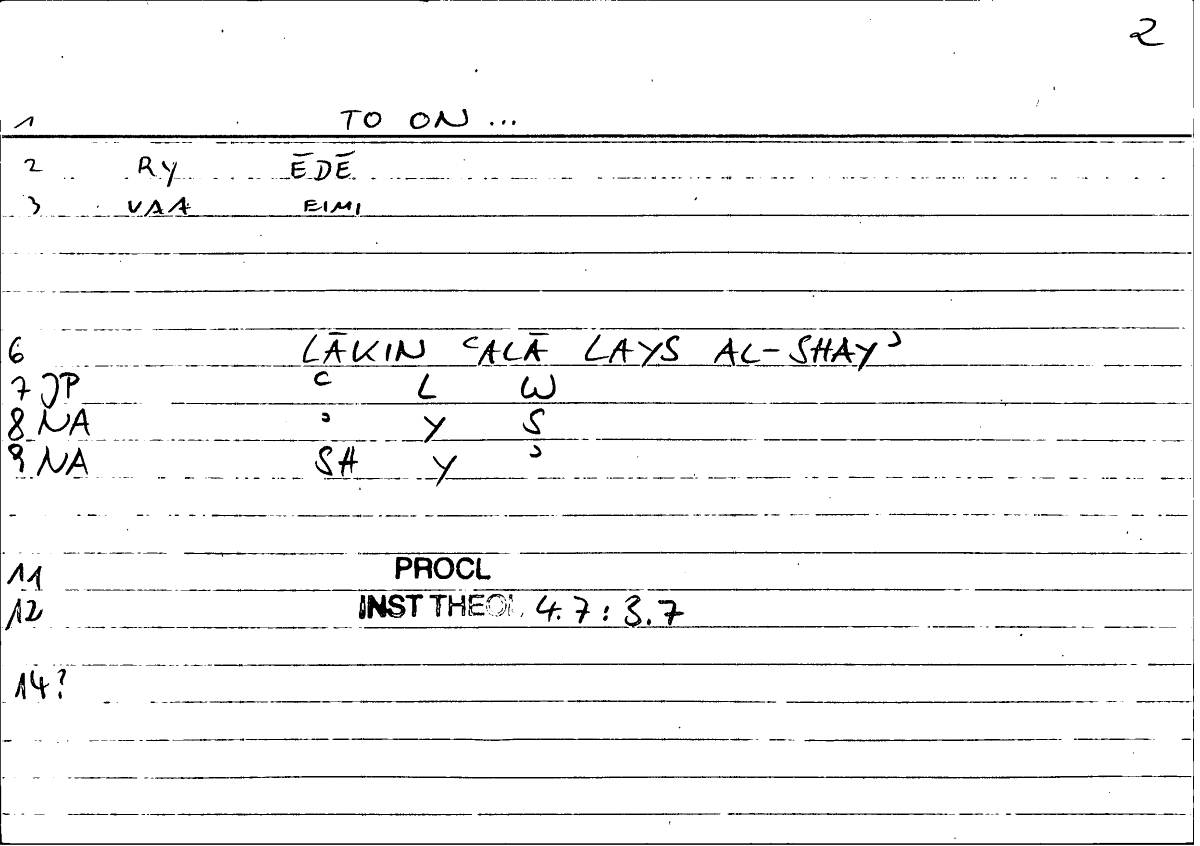 2
1 TO ON ...
2 RY ĒDĒ
3 VAA EIMI
6 LĀKIN ʿALĀ LAYS AL-SHAYʾ
7 JP ʿ L W
8 NA ʾ Y S
9 NA SH Y ʾ
11 PROCL
12 INST THEOL. 4.7:3.7
14?